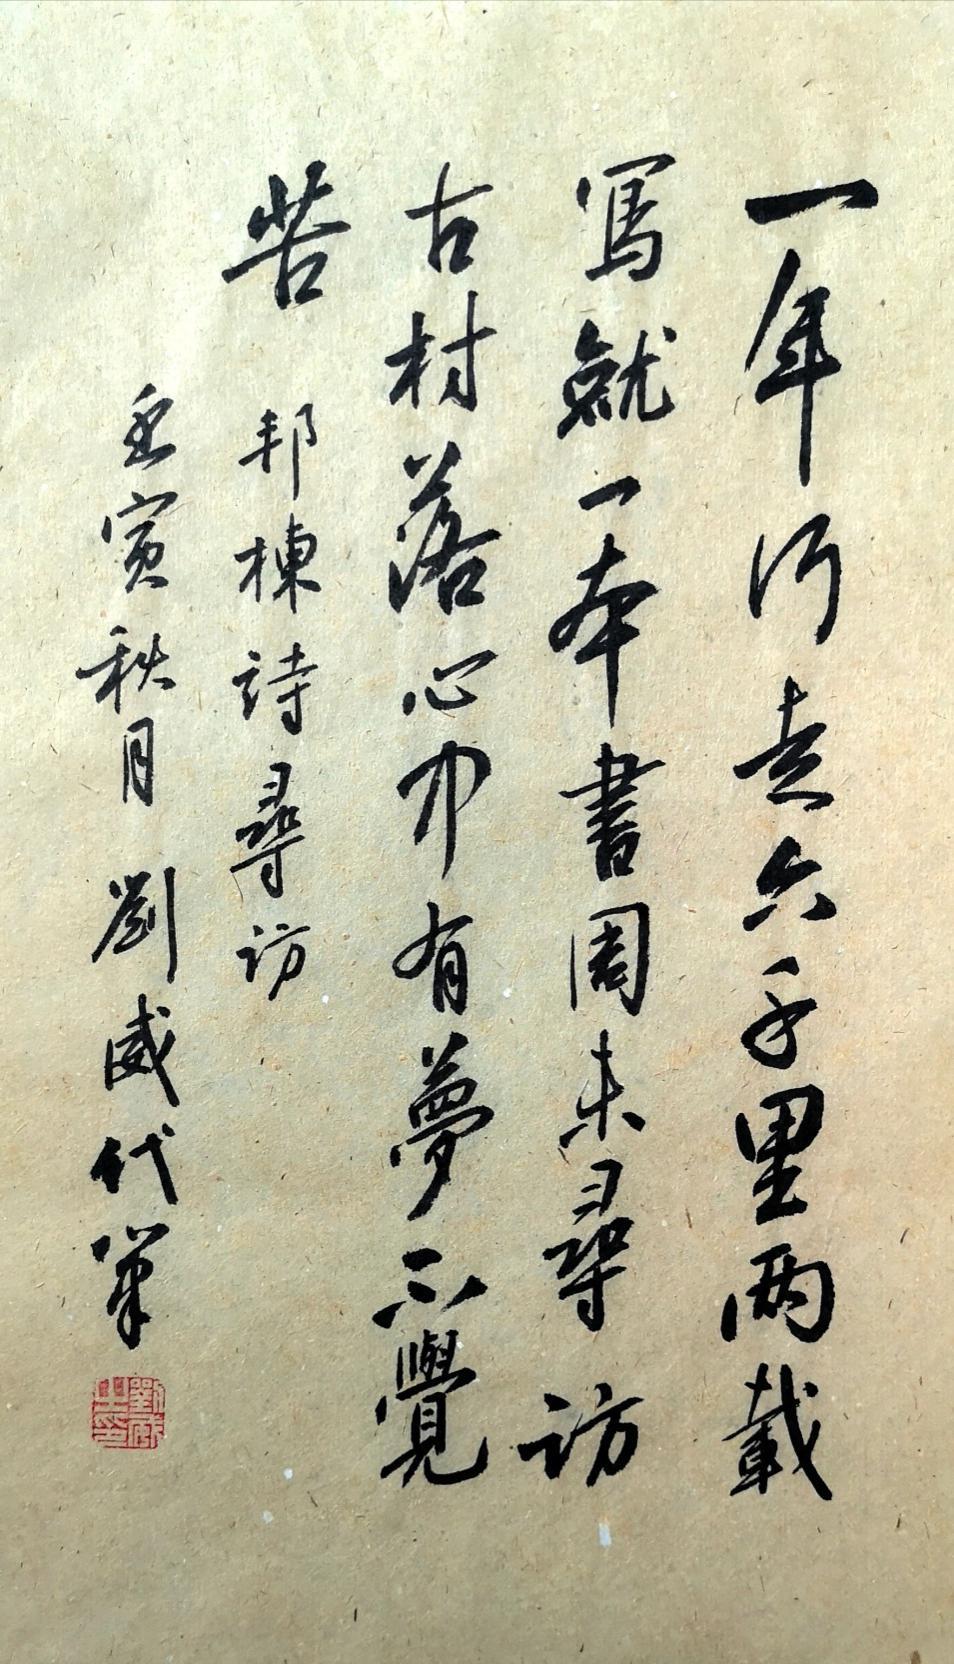 一年行走六千里兩載
寫就一本書周末尋訪
古村落心中有夢不覺
苦 邦棟詩尋訪
壬寅秋月 劉威代筆
劉威之印